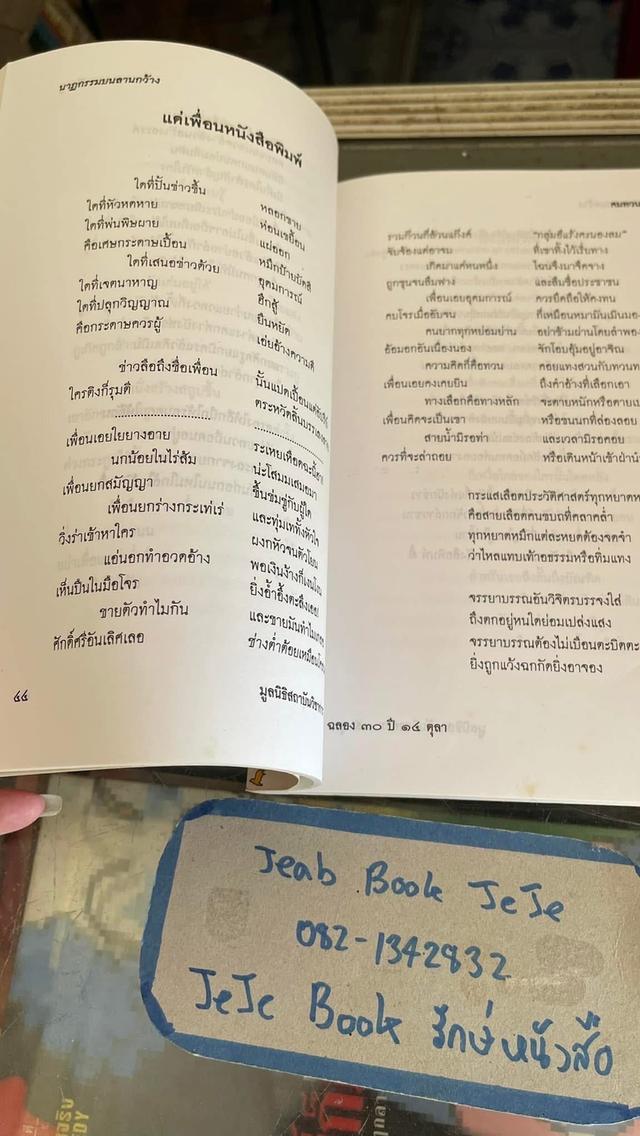 นาฏกรรมบนลานกว้าง
แด่เพื่อนหนังสือพิมพ์
ใดที่ปั้นข่าวขึ้น หลอกขาย
ใดที่หัวหดหาย ห่อนเขยื้อน
ใดที่พ่นพิษผาย แผ่ออก
คือเศษกระดาษเปื้อน หมึกป้ายปัดสี
ใดที่เสนอข่าวด้วย อุดมการณ์
ใดที่เจตนาหาญ ฮึกสู้
ใดที่ปลุกวิญญาณ ยืนหยัด
คือกระดาษควรผู้ เอ่ยอ้างความดี
ข่าวลือถึงชื่อเพื่อน นั้นแปดเปื้อน
ใครตึงก็รุมตี ตระหวัดลิ้น
เพื่อนเอยใยยางอาย ระเหยเหือด
นกน้อยในไร่ส้ม น่ะโสมมเสมอมา
เพื่อนยกสมัญญา ขึ้นข่มขู่กับผู้ใด
เพื่อนยกร่างกระเท่เร่ และทุ่มเททั้งหัวใจ
วิ่งร่าเข้าหาใคร ผงกหัวจนตัวโยน
แอ่นอกทำอวดอ้าง พอเงินง้างก็
เห็นปืนในมือโจร ยิ่งอ้ำอึ้งตะลึงเลย
ขายตัวทำไมกัน และขายมันทำไม
ศักดิ์ศรีอันเลิศเลอ ช่างต่ำต้อยเหมือน
๔๔ มูลนิธิสถาบันวิชาการ
คมทวน
รวมก๊วนที่อ้วนแก๊งค์ "กลุ่มอีแร้งครองลม"
จับจ้องแต่อาจม ที่เขาทิ้งไว้เรี่ยทาง
เกิดมาแค่หนหนึ่ง โฉนจึงมาจืดจาง
ถูกขุนจนลืมฟาง และลืมชื่อประชาชน
เพื่อนเอยอุดมการณ์ ควรยึดถือให้คงทน
คบโจรเมื่ออับจน ที่เหมือนหมามันเมินมอง
คนยากทุกหย่อมย่าน อย่าข้ามผ่านโดยลำพอง
อ้อมอกอันเนืองนอง จักโอบอุ้มอยู่อาจิณ
ความคิดก็คือทวน คอยแทงสวนกับทวน
เพื่อนเอยคงเคยยิน ถึงคำอ้างที่เลือกเอา
ทางเลือกคือทางหลัก จะตายหนักหรือตายเบา
เพื่อนคิดจะเป็นเขา หรือขนนกที่ล่องลอย
สายน้ำมิรอท่า และเวลามิรอคอย
ควรที่จะล่าถอย หรือเดินหน้าเข้าฝ่า
กระแสเลือดประวัติศาสตร์ทุกหยาด
คือสายเลือดคนขบถที่คลาคล่ำ
ทุกหยาดหมึกแต่ละหยดต้องจดจำ
ว่าไหลแทบเท้าอธรรมหรือทิ่มแทง
จรรยาบรรณอันวิจิตรบรรจงใส่
ถึงตกอยู่หนใดย่อมเปล่งแสง
จรรยาบรรณต้องไม่เบือน
ยิ่งถูกแว้งฉกกัดยิ่งอาจอง
ฉลอง ๓๐ ปี ๑๔ ตุลา
Jeab Book JeJe
082-1342832
JeJe Book รักษ์หนังสือ